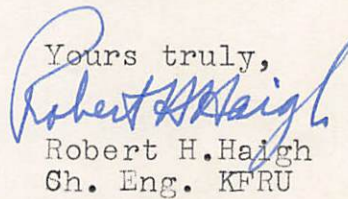 Yours truly,
Robert H Haigh
Robert H.Haigh
Ch. Eng. KFRU